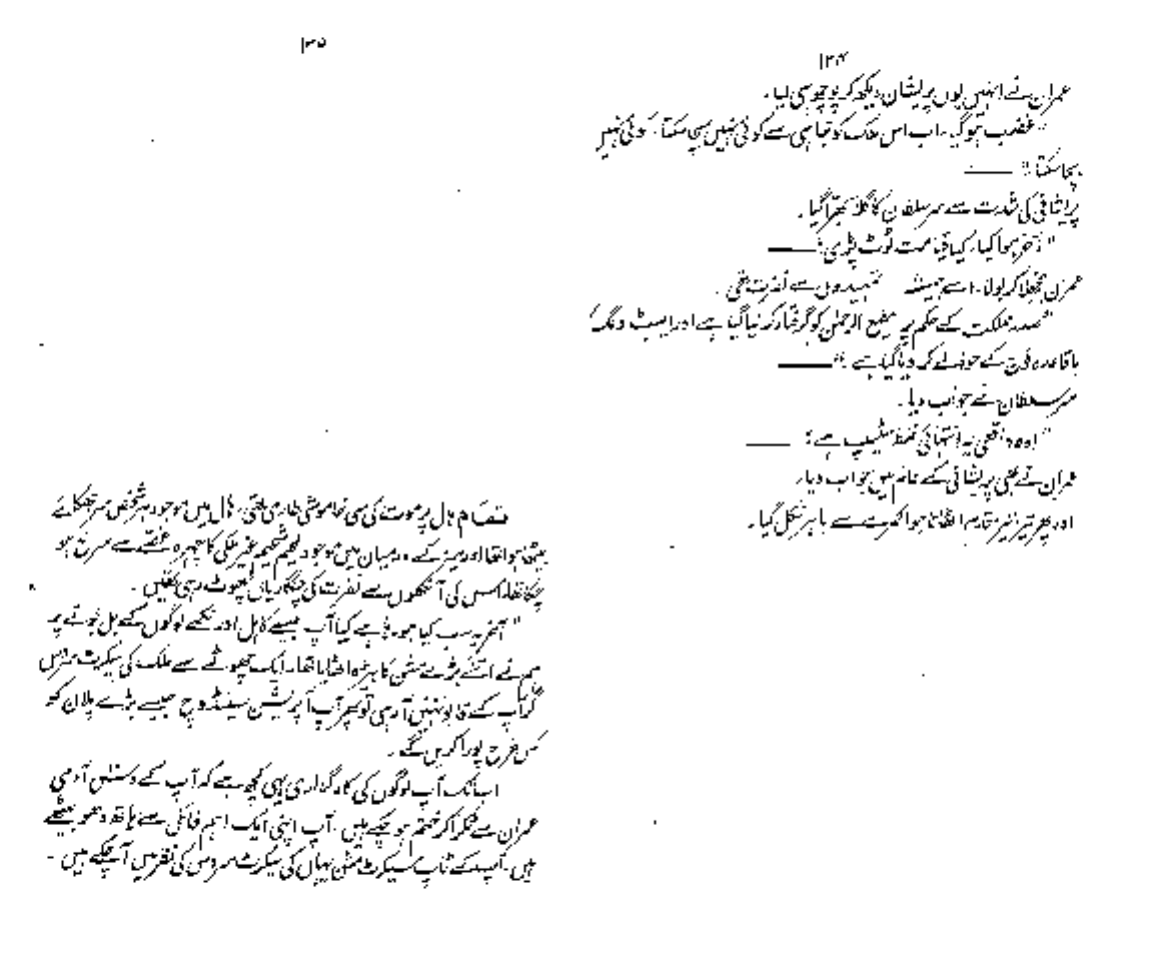 ۱۳۴
عمران نے انہیں یوں پریشان دیکھ کر پوچھ ہی لیا۔
"غضب ہوگیا۔ اب اس ملک کو تباہی سے کوئی نہیں بچا سکتا۔ کوئی نہیں
بچا سکتا"۔ ——
پریشانی کی شدت سے سر سلطان کا گلا بھرا گیا۔
"آخر ہوا کیا۔ کیا قیامت ٹوٹ پڑی؟ ——
عمران جھلا کر بولا۔ اسے ہمیشہ تمہیدوں سے نفرت تھی۔
"صدر مملکت کے حکم پر الرحمٰن کو گرفتار کر لیا گیا ہے اور ایسٹ ونگ
باقاعدہ فوج کے حوالے کر دیا گیا ہے"۔ ——
سر سلطان نے جواب دیا۔
"اوہ واقعی یہ انتہائی غلط سٹیپ ہے؛ ——
عمران نے بھی پریشانی کے عالم میں جواب دیا۔
اور پھر تیز تیز قدم اٹھاتا ہوا کمرے سے باہر نکل گیا۔
۱۳۵
تمام ہال پر موت کی سی خاموشی طاری تھی۔ ہال میں موجود ہر شخص سر جھکائے
بیٹھا ہوا تھا اور میز کے درمیان میں موجود لحیم شحیم غیر ملکی کا چہرہ غصے سے سرخ ہو
چکا تھا۔ اس کی آنکھوں سے نفرت کی چنگاریاں پھوٹ رہی تھیں۔
"آخر یہ سب کیا ہو رہا ہے کیا آپ جیسے کاہل اور نکمے لوگوں کے بل بوتے پر
ہم نے اتنے بڑے مشن کا بیڑہ اٹھایا تھا۔ ایک چھوٹے سے ملک کی سیکرٹ سروس
گر آپ کے قابو نہیں آ رہی تو پھر آپ آپریشن سینڈوچ جیسے بڑے پلان کو
کس طرح پورا کریں گے۔
اب تک آپ لوگوں کی کارگزاری یہی کچھ ہے کہ آپ کے دس آدمی
عمران سے ٹکرا کر ختم ہو چکے ہیں۔ آپ اپنی ایک اہم فائل سے ہاتھ دھو بیٹھے
ہیں۔ آپ کے ٹاپ سیکرٹ مشن یہاں کی سیکرٹ سروس کی نظر میں آ چکے ہیں۔